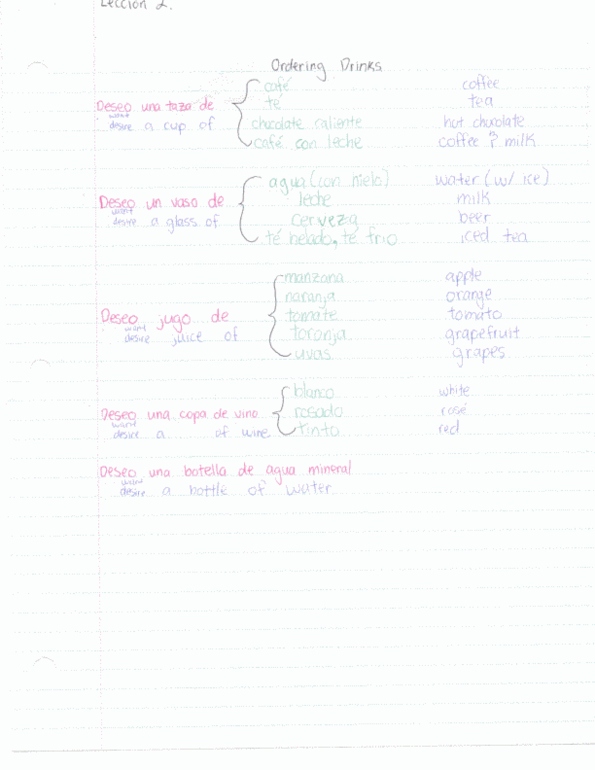 Lección 2.
Ordering Drinks
café coffee
té tea
Deseo una taza de
want
desire a cup of
chocolate caliente hot chocolate
café con leche coffee & milk
agua (con hielo) water (w/ ice)
Deseo un vaso de
leche milk
want
desire a glass of
cerveza beer
té helado, té frio iced tea
manzana apple
naranja orange
Deseo jugo de
tomate tomato
want
desire juice of
toronja grapefruit
uvas grapes
blanco white
Deseo una copa de vino
rosado rosé
want
desire a of wine
tinto red
Deseo una botella de agua mineral
want
desire a bottle of water